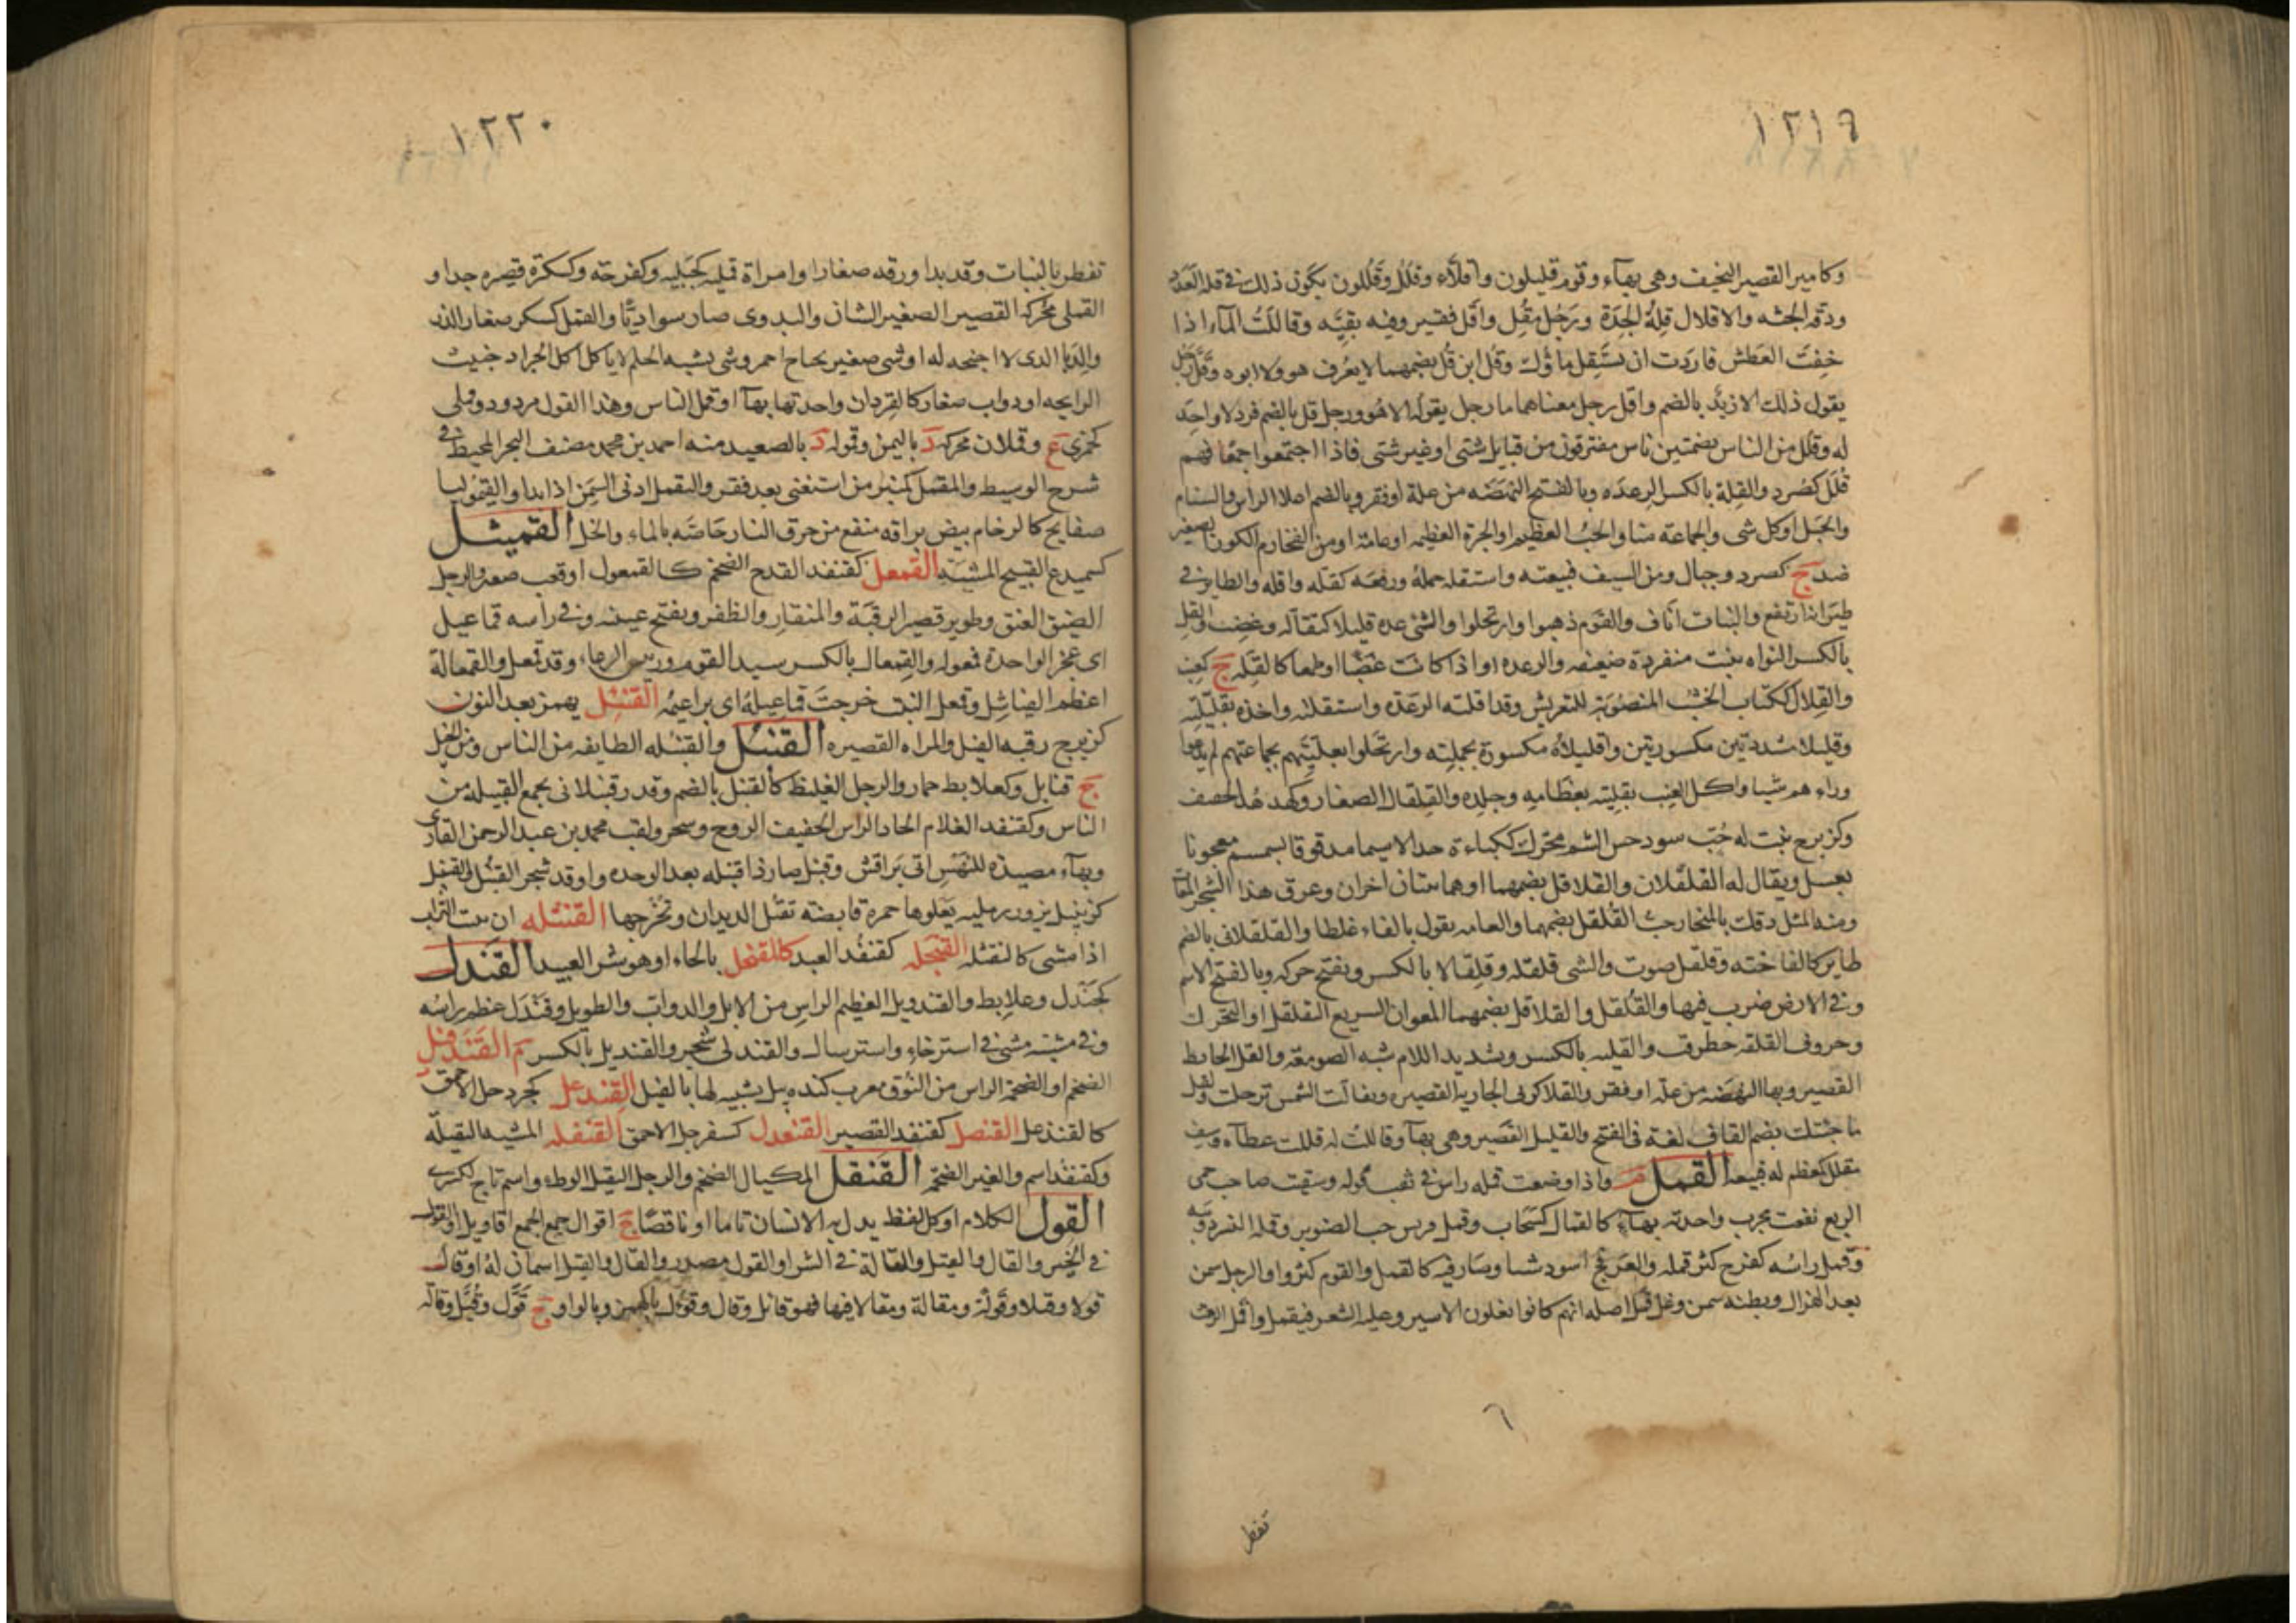 ١٢١٩
وكامير القصير النحيف وهى بهآء وقوم قليلون واقلاء وقلل وقللون يكون ذلك فى قلة العدد
ودقة الجثه والاقلال قلة الجدة ورجل مقل واقل فقير وفيه بقيه وقاللت المآء اذا
خفت العطش فاردت ان تستقل ماؤك وقل ابن قل بضمهما لا يعرف هو ولا ابوه وقل رجل
يقول ذلك الا زيد بالضم واقل رجل معناهما ما رجل يقوله الا هو ورجل قل بالضم فرد لا واحد
له وقلل من الناس بضمتين ناس مفترقون من قبايل شتى او غير شتى فاذا اجتمعوا جمعا فهم
قلل كصرد والقلة بالكسر الرعده وبالفتح النهضه من علة او فقر وبالضم اعلا الراس والسنام
والجبل او كل شى والجماعة منا والحب العظيم او الجرة العظيمه او عامة او من الفخار والكوز الصغير
ضد ج كصرد وجبال ومن السيف قبيعته واستقله حمله ورفعه كقله واقله والطاير فى
طيرانه ارتفع والنبات اناف والقوم ذهبوا وارتحلوا والشى عده قليلا كتقاله وغضب والقل
بالكسر النواه تنبت منفردة ضعيفه والرعده او اذا كانت غضبا او طمعا كالقله ج كعنب
والقلال ككتاب الخشب المنصوبة للتعريش وقد اقلته الرعدة واستقلته واخذه بقليلته
وقليلا مشددتين مكسورتين واقليلاه مكسورة بجملته وارتحلوا بقليتهم بجماعتهم لم يدعوا
وراءهم شيا واكل الضب بقليته بعظامه وجلده
وكزبرج نبت له حب سود حسن الشم محرك للباءة جدا لا سيما مدقوقا بسمسم معجونا
بعسل ويقال له القلقلان والقلاقل بضمهما او هما نبتان اخران وعرق هذا الشجر المغاث
ومنه المثل دقك بالمنحاز حب القلقل بضمهما والعامه يقول بالفاء غلطا والقلقلانى بالضم
طاير كالفاخته وقلقل صوت والشى قلقلة وقلقالا بالكسر ويفتح حركه وبالفتح الاسم
وفى الارض ضرب فيها والقلقل والقلاقل بضمهما المعوان السريع التقلقل او التحرك
وحروف القلقه والقليه بالكسر وشديد اللام شبه الصومعة والقل الحايط
القصير وبها النهضه من علة او فقر والقلا كربى الجارية القصيره وتقالت الشمس ترحلت
ما جئتك بضم القاف لغة فى الفتح والقليل القصير وهى بهآ وقاللت له قللت عطآه وسيف
مقلل كمعظم له قبيعة القمل م واذا وضعت قمله راس فى ثقب فوله وسقيت صاحب حمى
الربع نفعت مجرب واحدته بهآء كالقمال كسحاب وقمل قريش حب الصنوبر وقملة النسر دويبه
وقمل راسه كفرح كثر قمله والعرفج اسود شيا وصار فيه كالقمل والقوم كثروا والرجل سمن
بعد الهزال وبطنه سمن وغل قمل اصله انهم كانوا يغلون الاسير وعليه الشعر فيقمل واقمل الرمث
تفطر
١٢٢٠
تفطر بالنبات وقد بدا ورقه صغارا وامراة قمله كجبليه وكفرحة وكسكرة قصيره جدا و
القملى محركة القصير الصغير الشان والبدوى صار سواديا والقمل كسكر صغار الذر
والدبا الذى لا اجنحه له او شى صغير بجناح احمر وشى يشبه الحلم لا ياكل اكل الجراد خبيث
الرايحه او دواب صغار كالقردان واحدتها بهآ او قمل الناس وهذا القول مردود وقملى
كجمزى ع وقملان محركة د باليمن وقموله د بالصعيد منه احمد بن محمد مصنف البحر المحيط فى
شرح الوسيط والمقمل كمنبر من استغنى بعد فقر والتقمل ادنى السمن اذا بدا والقيموليا
صفايح كالرخام بيض براقه منفع من حرق النار خاصه بالماء والخل القميثل
كسميدع القبيح المشيه القمعل كقنفد القدح الضخم كالقمعول او قعب صغير والرجل
الضيق العنق وطوير قصير الرقبة والمنقار والظفر ويفتح عينه وفى راسه قماعيل
اى عجر الواحدة قمعوله والقمعال بالكسر سيد القوم ورييس الرعاء وقد قمعل والقمعالة
اعظم الفياشل وقمعل النبت خرجت قماعيله اى براعيمه القنئل بهمز بعد النون
كزبرج رقبه الفيل والمراه القصيره القنبل والقنبله الطايفه من الناس ومن الخيل
ج قنابل وكعلابط حمار والرجل الغليظ كالقنبل بالضم وقدر قنبلانى يجمع القبيلة من
الناس وكقنفد الغلام الحاد الراس الخفيف الروح وشجر ولقب محمد بن عبد الرحمن القارى
وبهآء مصيدة للنهس ابى براقش وقنبل صار ذا قنبله بعد الوحده واوقد شجر القنبل والقنبيل
كزنبيل بزور رمليه يعلوها حمرة قابضة تقتل الديدان وتخرجها القنثله ان يثير التراب
اذا مشى كالنقثله القنجله كقنفد العبد كالقنحل بالحاء او هو شر العبيد القندل
كجندل وعلابط والقندويل العظيم الراس من الابل والدواب والطويل وقندل عظم راسه
وفى مشيته مشى فى استرخاء واسترسال والقندلى شجر والقنديل بالكسر م القندفيل
الضخم او الضخمة الراس من النوق معرب كنده پيل يشبيه لها بالفيل القندعل كجردحل الاحمق
كالقنذعل القنصل كقنفد القصير القنعدل كسفرجل الاحمق القنفله المشيه الثقيله
وكقنفد اسم والغير الضخم القنقل المكيال الضخم والرجل الثقيل الوطء واسم تاج لكسرى
القول الكلام او كل لفظ يدل به الانسان تاما او ناقصا ج اقوال جمع الجمع اقاويل او القول
فى الخير والقال والقيل والقالة فى الشر او القول مصدر والقال والقيل اسمان له او قال
قولا وقيلا وقولة ومقالة ومقالا فيها فهو قائل وقال وقؤول بالهمز وبالواو ج قول وقيل وقالة